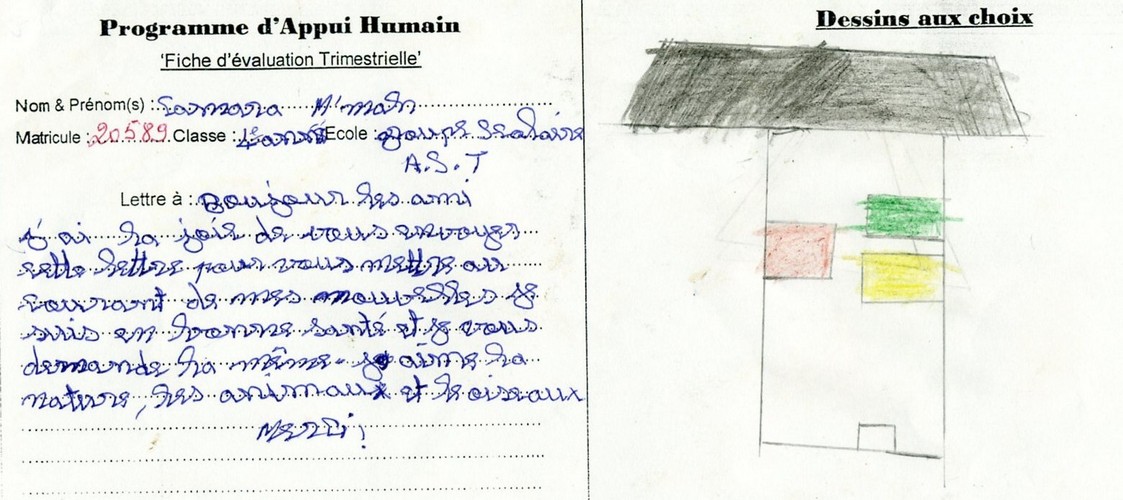 Programme d'Appui Humain
'Fiche d'évaluation Trimestrielle'
Nom & Prénom(s) : Camara M'mah
Matricule : 20589 Classe : Ecole : Scolaire
A.S.T
Lettre à : Boujour les ami
j'ai la joie de vous envoyer
cette lettre pour vous mettre au
courant de mes nouvelles je
suis en bonne santé et je vous
demande la même. je aime la
nature, les animaux et le oiseaux
Merci!
Dessins aux choix